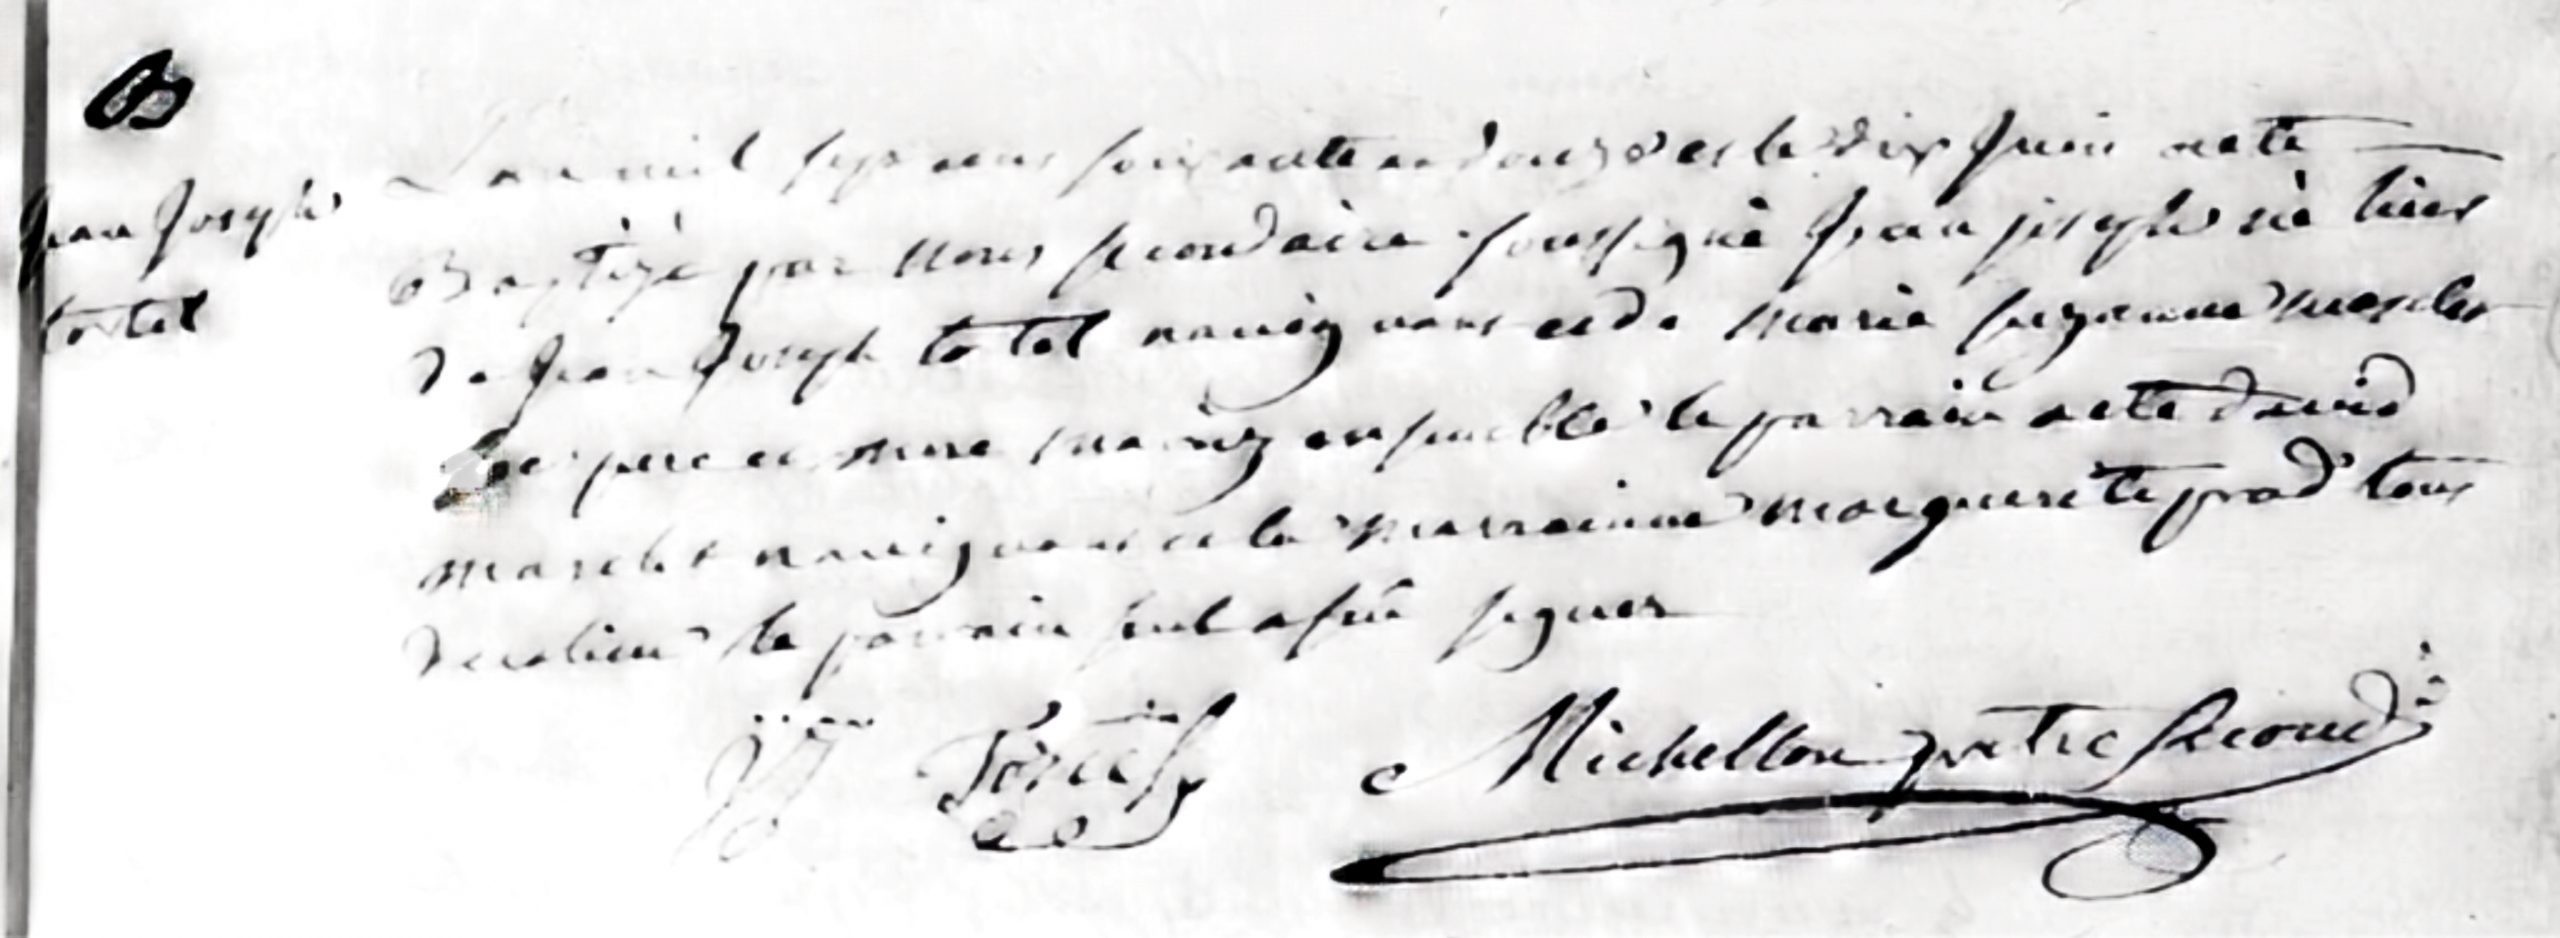 B
Jean Joseph
tortel
L'an mil sept cens soixante et douze et le dix Juin a eté
Baptizé par nous secondaire soussigné Jean joseph né hier
de Jean Joseph tortel navigant et de marie suzanne
pere et mere mariez ensemble le parrain a eté david
navigant et la marrainne marguerite prad tous
de ce lieu le parrain seul a sçu signer
JJ Tortel Michellon pretre second.re